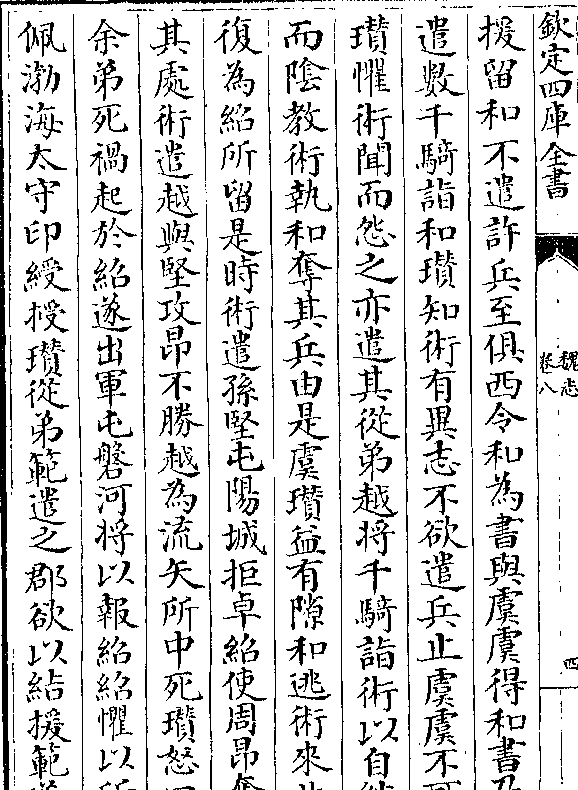 欽定四庫全書
魏志
卷八
四
援留和不遣許兵至俱西令和為書與虞虞得和書乃
遣數千騎詣和瓚知術有異志不欲遣兵止虞虞不可
瓚懼術聞而怨之亦遣其從弟越将千騎詣術以自結
而陰教術執和奪其兵由是虞瓚益有隙和逃術來北
復為紹所留是時術遣孫堅屯陽城拒卓紹使周昂奪
其處術遣越與堅攻昂不勝越為流矢所中死瓚怒曰
余弟死禍起於紹遂出軍屯磐河将以報紹紹懼以所
佩渤海太守印綬授瓚從弟範遣之郡欲以結援範